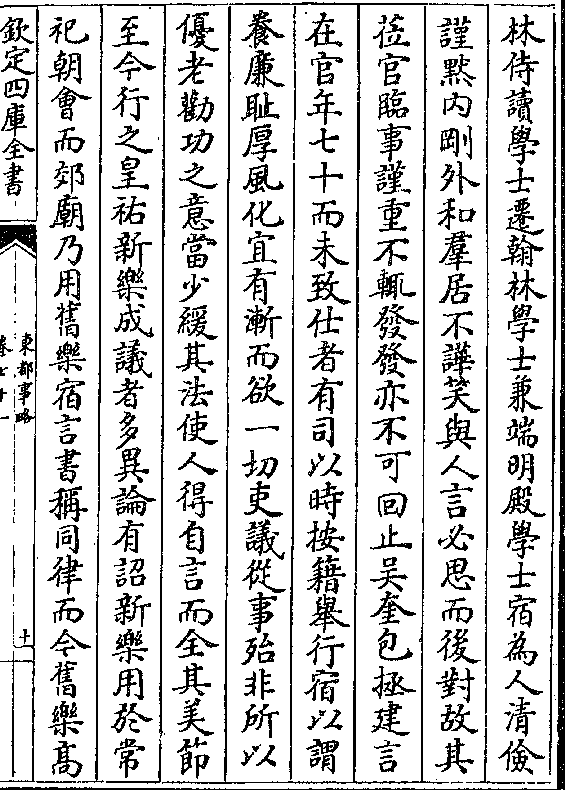 林侍讀學士遷翰林學士兼端明殿學士宿為人清儉
謹黙内剛外和羣居不譁笑與人言必思而後對故其
莅官臨事謹重不輒發發亦不可回止吴奎包拯建言
在官年七十而未致仕者有司以時按籍舉行宿以謂
養廉耻厚風化宜有漸而欲一切吏議從事殆非所以
優老勸功之意當少緩其法使人得自言而全其美節
至今行之皇祐新樂成議者多異論有詔新樂用於常
祀朝會而郊廟乃用舊樂宿言書稱同律而今舊樂髙
欽定四庫全書
東都事略
卷七十一
十